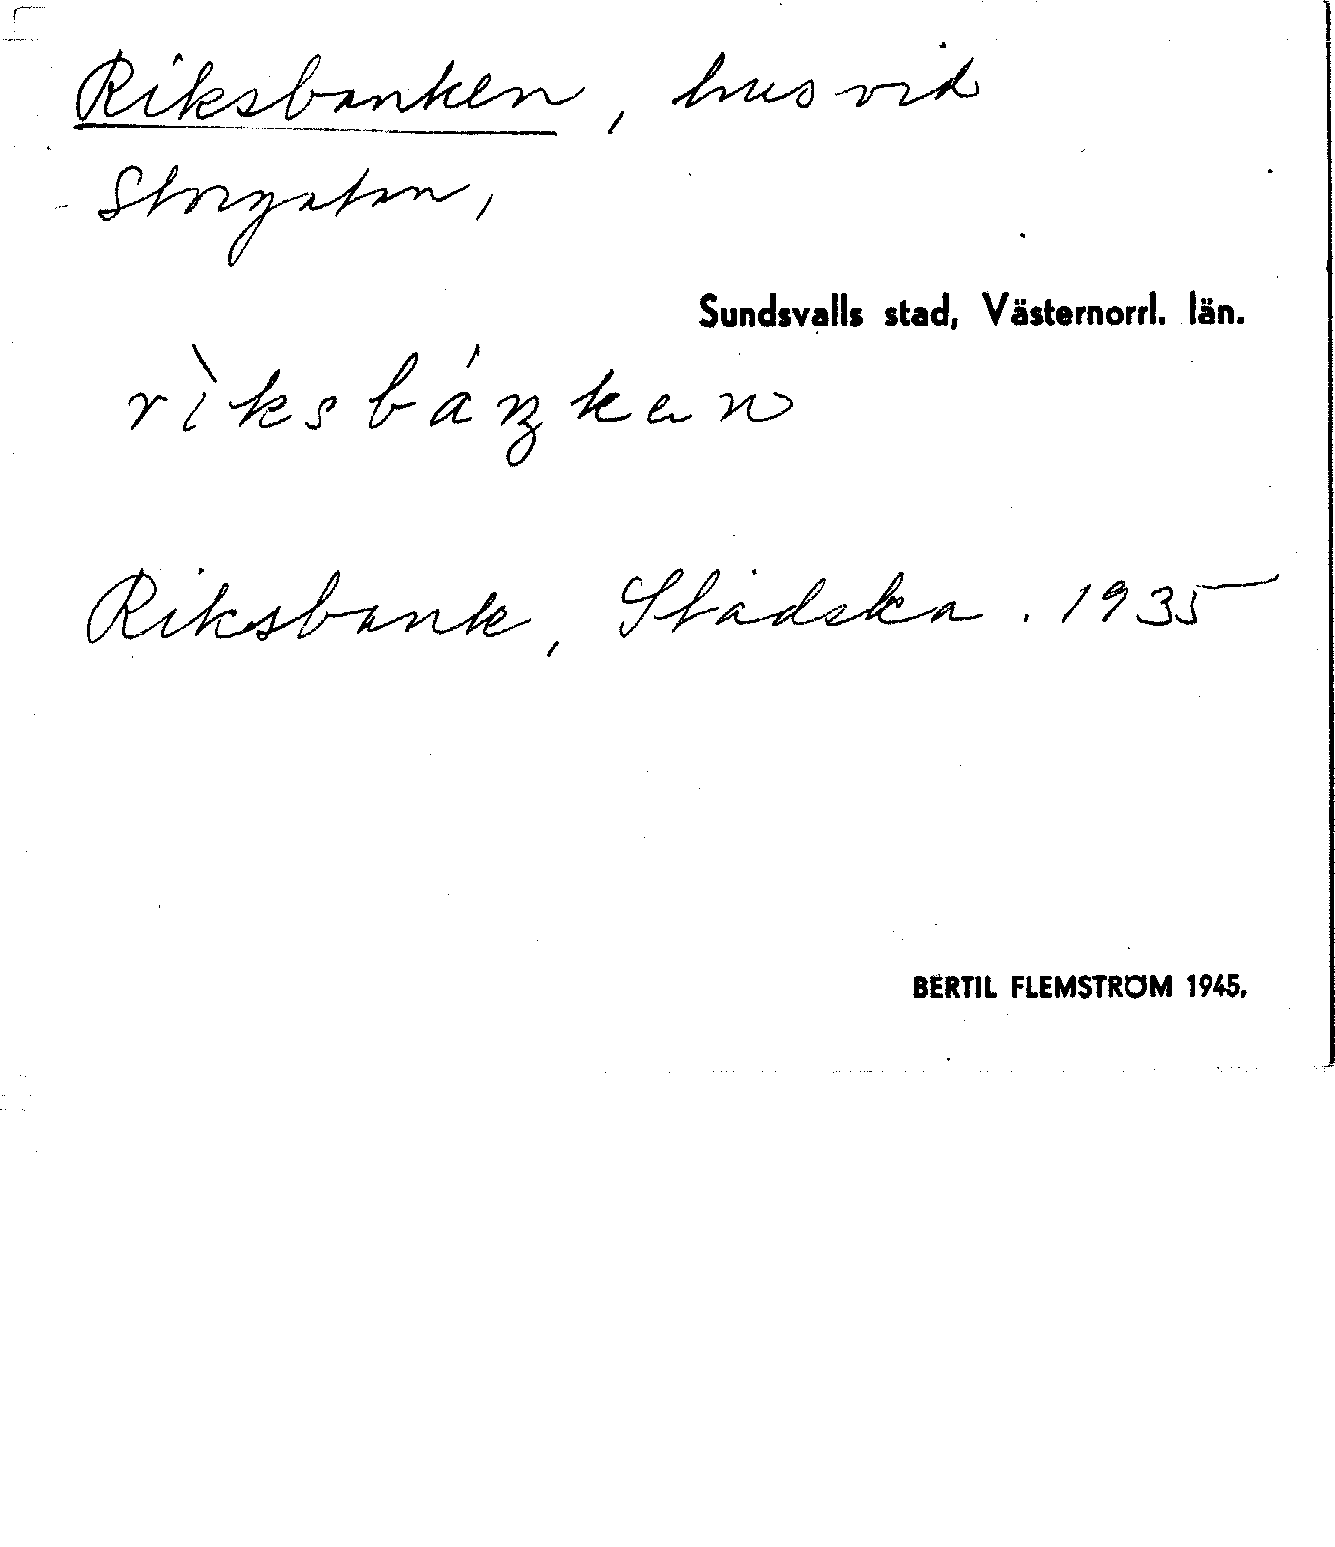 Riksbanken, hus vid
Storgatan,
Sundsvalls stad, Västernorrl. län.
rìksbáŋken
Riksbank, Stadska. 1935
BERTIL FLEMSTRÖM 1945.